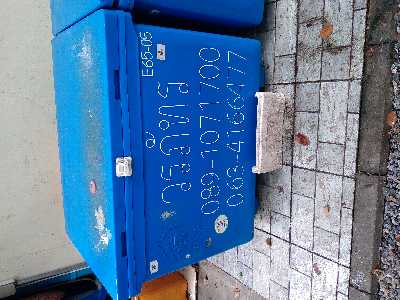 E65-05
วรภัทร
089-1071700
063-4166477